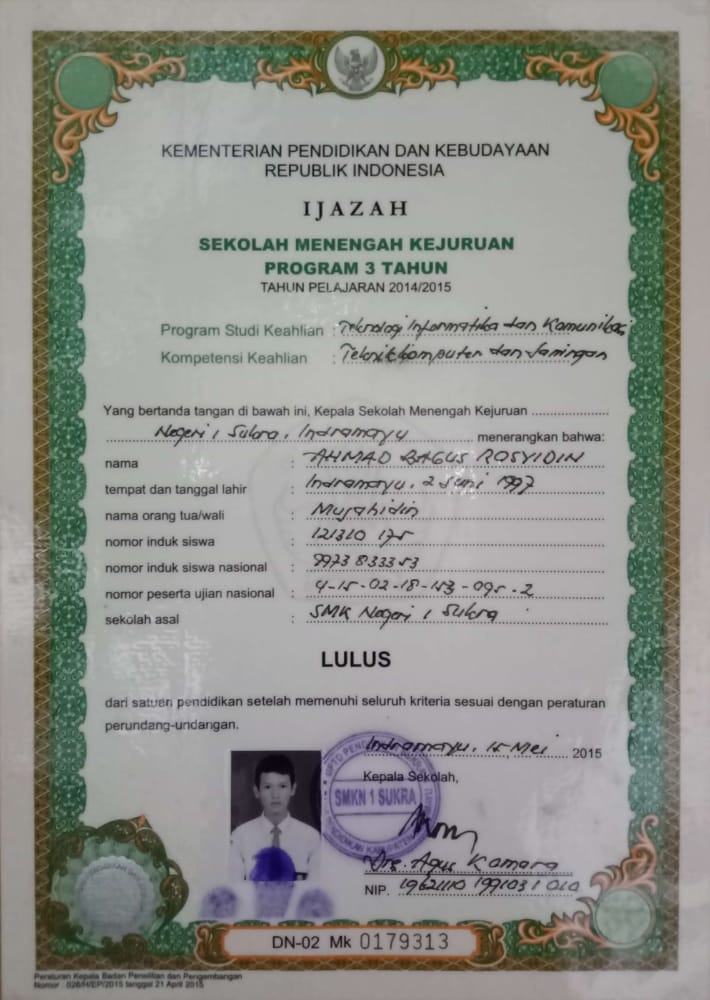 KEMENTERIAN PENDIDIKAN DAN KEBUDAYAAN
REPUBLIK INDONESIA
IJAZAH
SEKOLAH MENENGAH KEJURUAN
PROGRAM 3 TAHUN
TAHUN PELAJARAN 2014/2015
Program Studi Keahlian : Teknologi Informatika dan Komunikasi
Kompetensi Keahlian : Teknik Komputer dan Jaringan
Yang bertanda tangan di bawah ini, Kepala Sekolah Menengah Kejuruan
Negeri 1 Sukra, Indramayu menerangkan bahwa:
nama : AHMAD BAGUS ROSYIDIN
tempat dan tanggal lahir : Indramayu, 2 Juni 1997
nama orang tua/wali : Mujahidin
nomor induk siswa : 121310 175
nomor induk siswa nasional : 9973833353
nomor peserta ujian nasional : 4-15-02-18-153-095-2
sekolah asal : SMK Negeri 1 Sukra
LULUS
dari satuan pendidikan setelah memenuhi seluruh kriteria sesuai dengan peraturan
perundang-undangan.
Indramayu, 15 Mei 2015
Kepala Sekolah,
SMKN 1 SUKRA
Drs. Agus Komara
NIP. 19621110 199103 1 010
DN-02 Mk 0179313
Peraturan Kepala Badan Penelitian dan Pengembangan
Nomor : 026/H/EP/2015 tanggal 21 April 2015